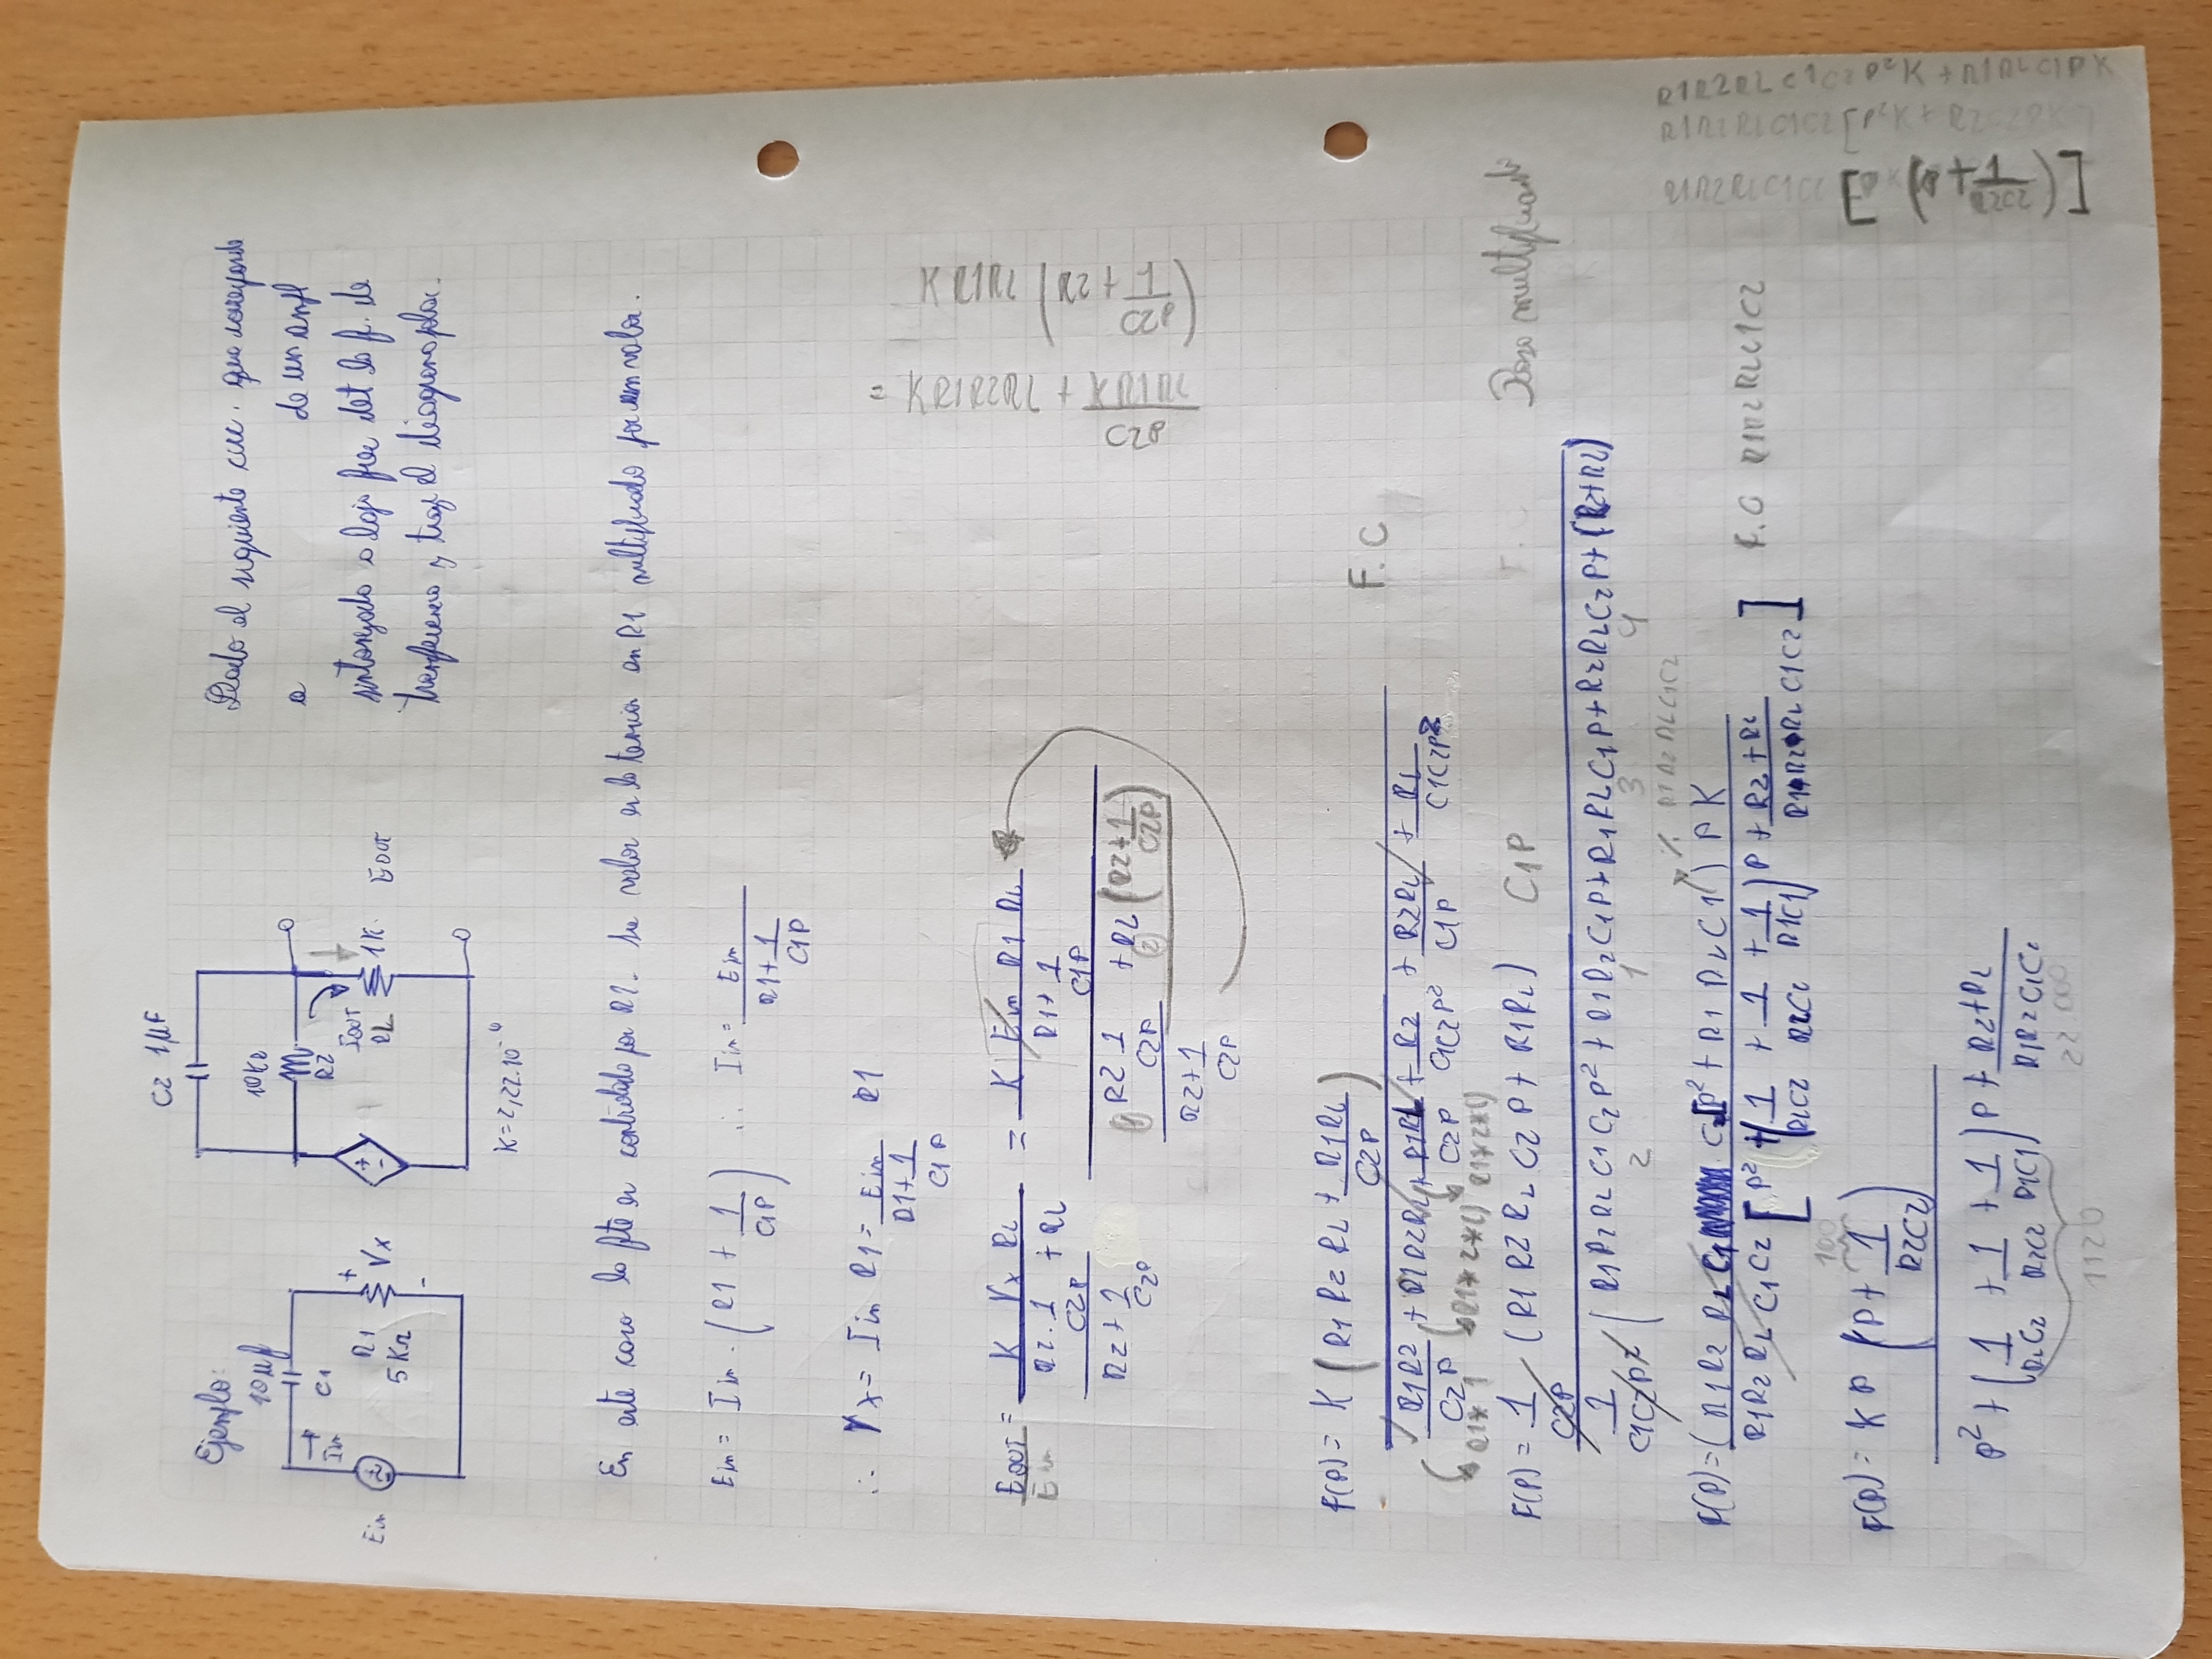 Ejemplo:
C2 1μF
10μf
C1
Iin
Ein
R1
5KΩ
+
Vx
-
10KΩ
R2
+
-
Iout
RL
1K
Eout
K=2,22.10⁻⁶
Dado el siguiente circ. que corresponde
a de un ampl
sintonizado a baja frec det la f. de
transferencia y traz el diagrama
En este caso la fte es controlada por R1. Su valor es la tension en R1 multiplicado por un valor.
Ein = Iin . (R1 + 1/C1P) ∴ Iin = Ein/(R1 + 1/C1P)
∴ Vx = Iin R1 = Ein/(R1 + 1/C1P) R1
Eout/Ein = K Vx RL / (R2 . 1/C2P / (R2 + 1/C2P) + RL) = K Ein R1 RL / (R1 + 1/C1P) / (R2 1/C2P + RL (R2 + 1/C2P) / (R2 + 1/C2P))
1 2
K R1RL (R2 + 1/C2P)
= K R1R2RL + K R1RL/C2P
F(P) = K (R1 R2 RL + R1RL/C2P) / (R1R2/C2P + R1R2RL + R1RL/C2P + R2/C1C2P² + R2RL/C1P + RL/C1C2P²)
F.C
R1*1 R1*2*() R1*2*()
F(P) = 1/C2P (R1 R2 RL C2 P + R1RL) C1P / 1/C1C2P² (R1R2RL C1 C2P² + R1R2C1P + R1RLC1P + R2RLC2P + (R2+RL)
Paso multiplicando
2 1 3 4
% R1R2RLC1C2
F(P) = (R1R2 RL C1 C2P² + R1 RL C1) P K / R1R2RL C1C2 [P² + (1/RLC2 + 1/R2C2 + 1/R1C1) P + R2+RL/R1R2RL C1C2]
F.C R1R2RLC1C2
100
F(P) = K P (P + 1/R2C2) / P² + (1/RLC2 + 1/R2C2 + 1/R1C1) P + R2+RL/R1R2C1C2
1120
22.000
R1R2RLC1C2P²K + R1RLC1PK
[PK (P + 1/R2C2)]